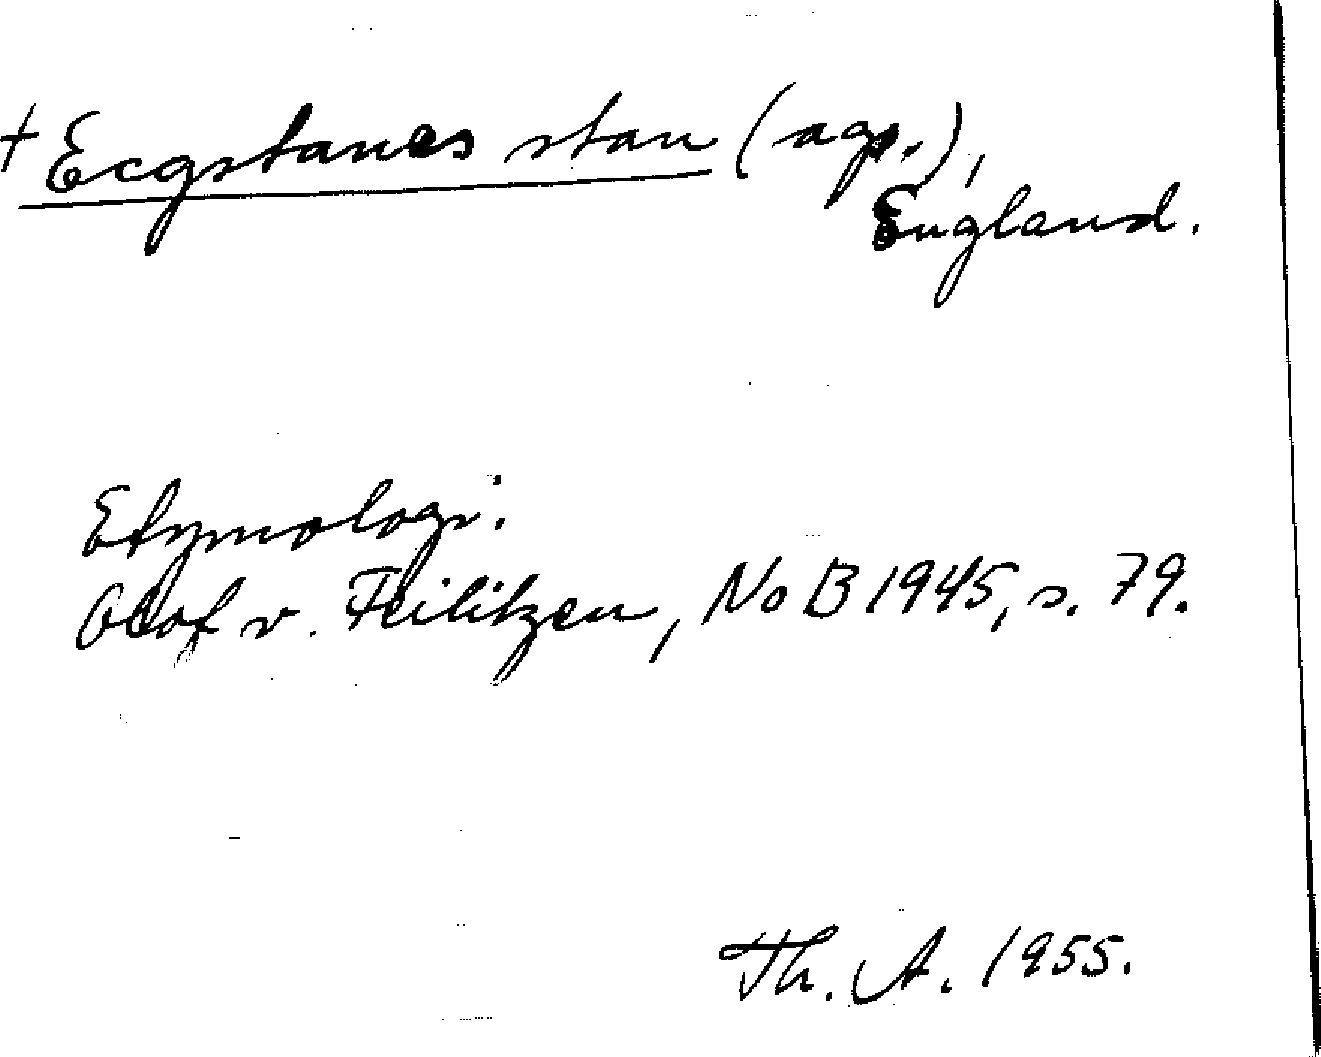 † Ecgstanes stan (ags.),
England.
Etymologi:
Olof v. Feilitzen, NoB 1945, s. 79.
Th. A. 1955.